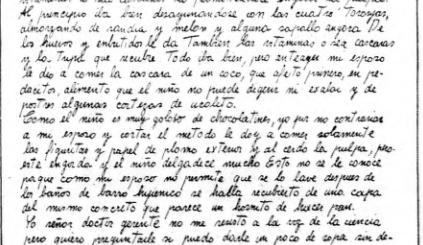 Al principio iba bien desayunandose con las cuatro toronjas,
almorzando de sandia y melon y alguna zapallo angora De
los huevos y embutidos le da tambien las vitaminas o sea cascaras
y la tripa que recubre Todo iba bien, pero anteayer mi esposo
le dio a comer la cascara de un coco, que afeitó primero, en pe-
dacitos, alimento que el niño no puede digerir ni exalar y de
postres algunas cortezas de eucalito.
Como el niño es muy goloso de chocolatines, yo por no contrariar
a mi esposo y cortar el metodo le doy a comer solamente
las figuritas y papel de plomo exterior y al cerdo la pulpa, pero
este engorda y el niño delgadece mucho Esto no se le conoce
paque como mi esposo no permite que se lo lave despues de
los baños de barro higienico se halla recubierto de una capa
del mismo concreto que parece un hornito de hacer pan.
Yo señor doctor gerente no me resisto a la voz de la ciencia
pero quiero preguntarle si puedo darle un poco de sopa sin de-